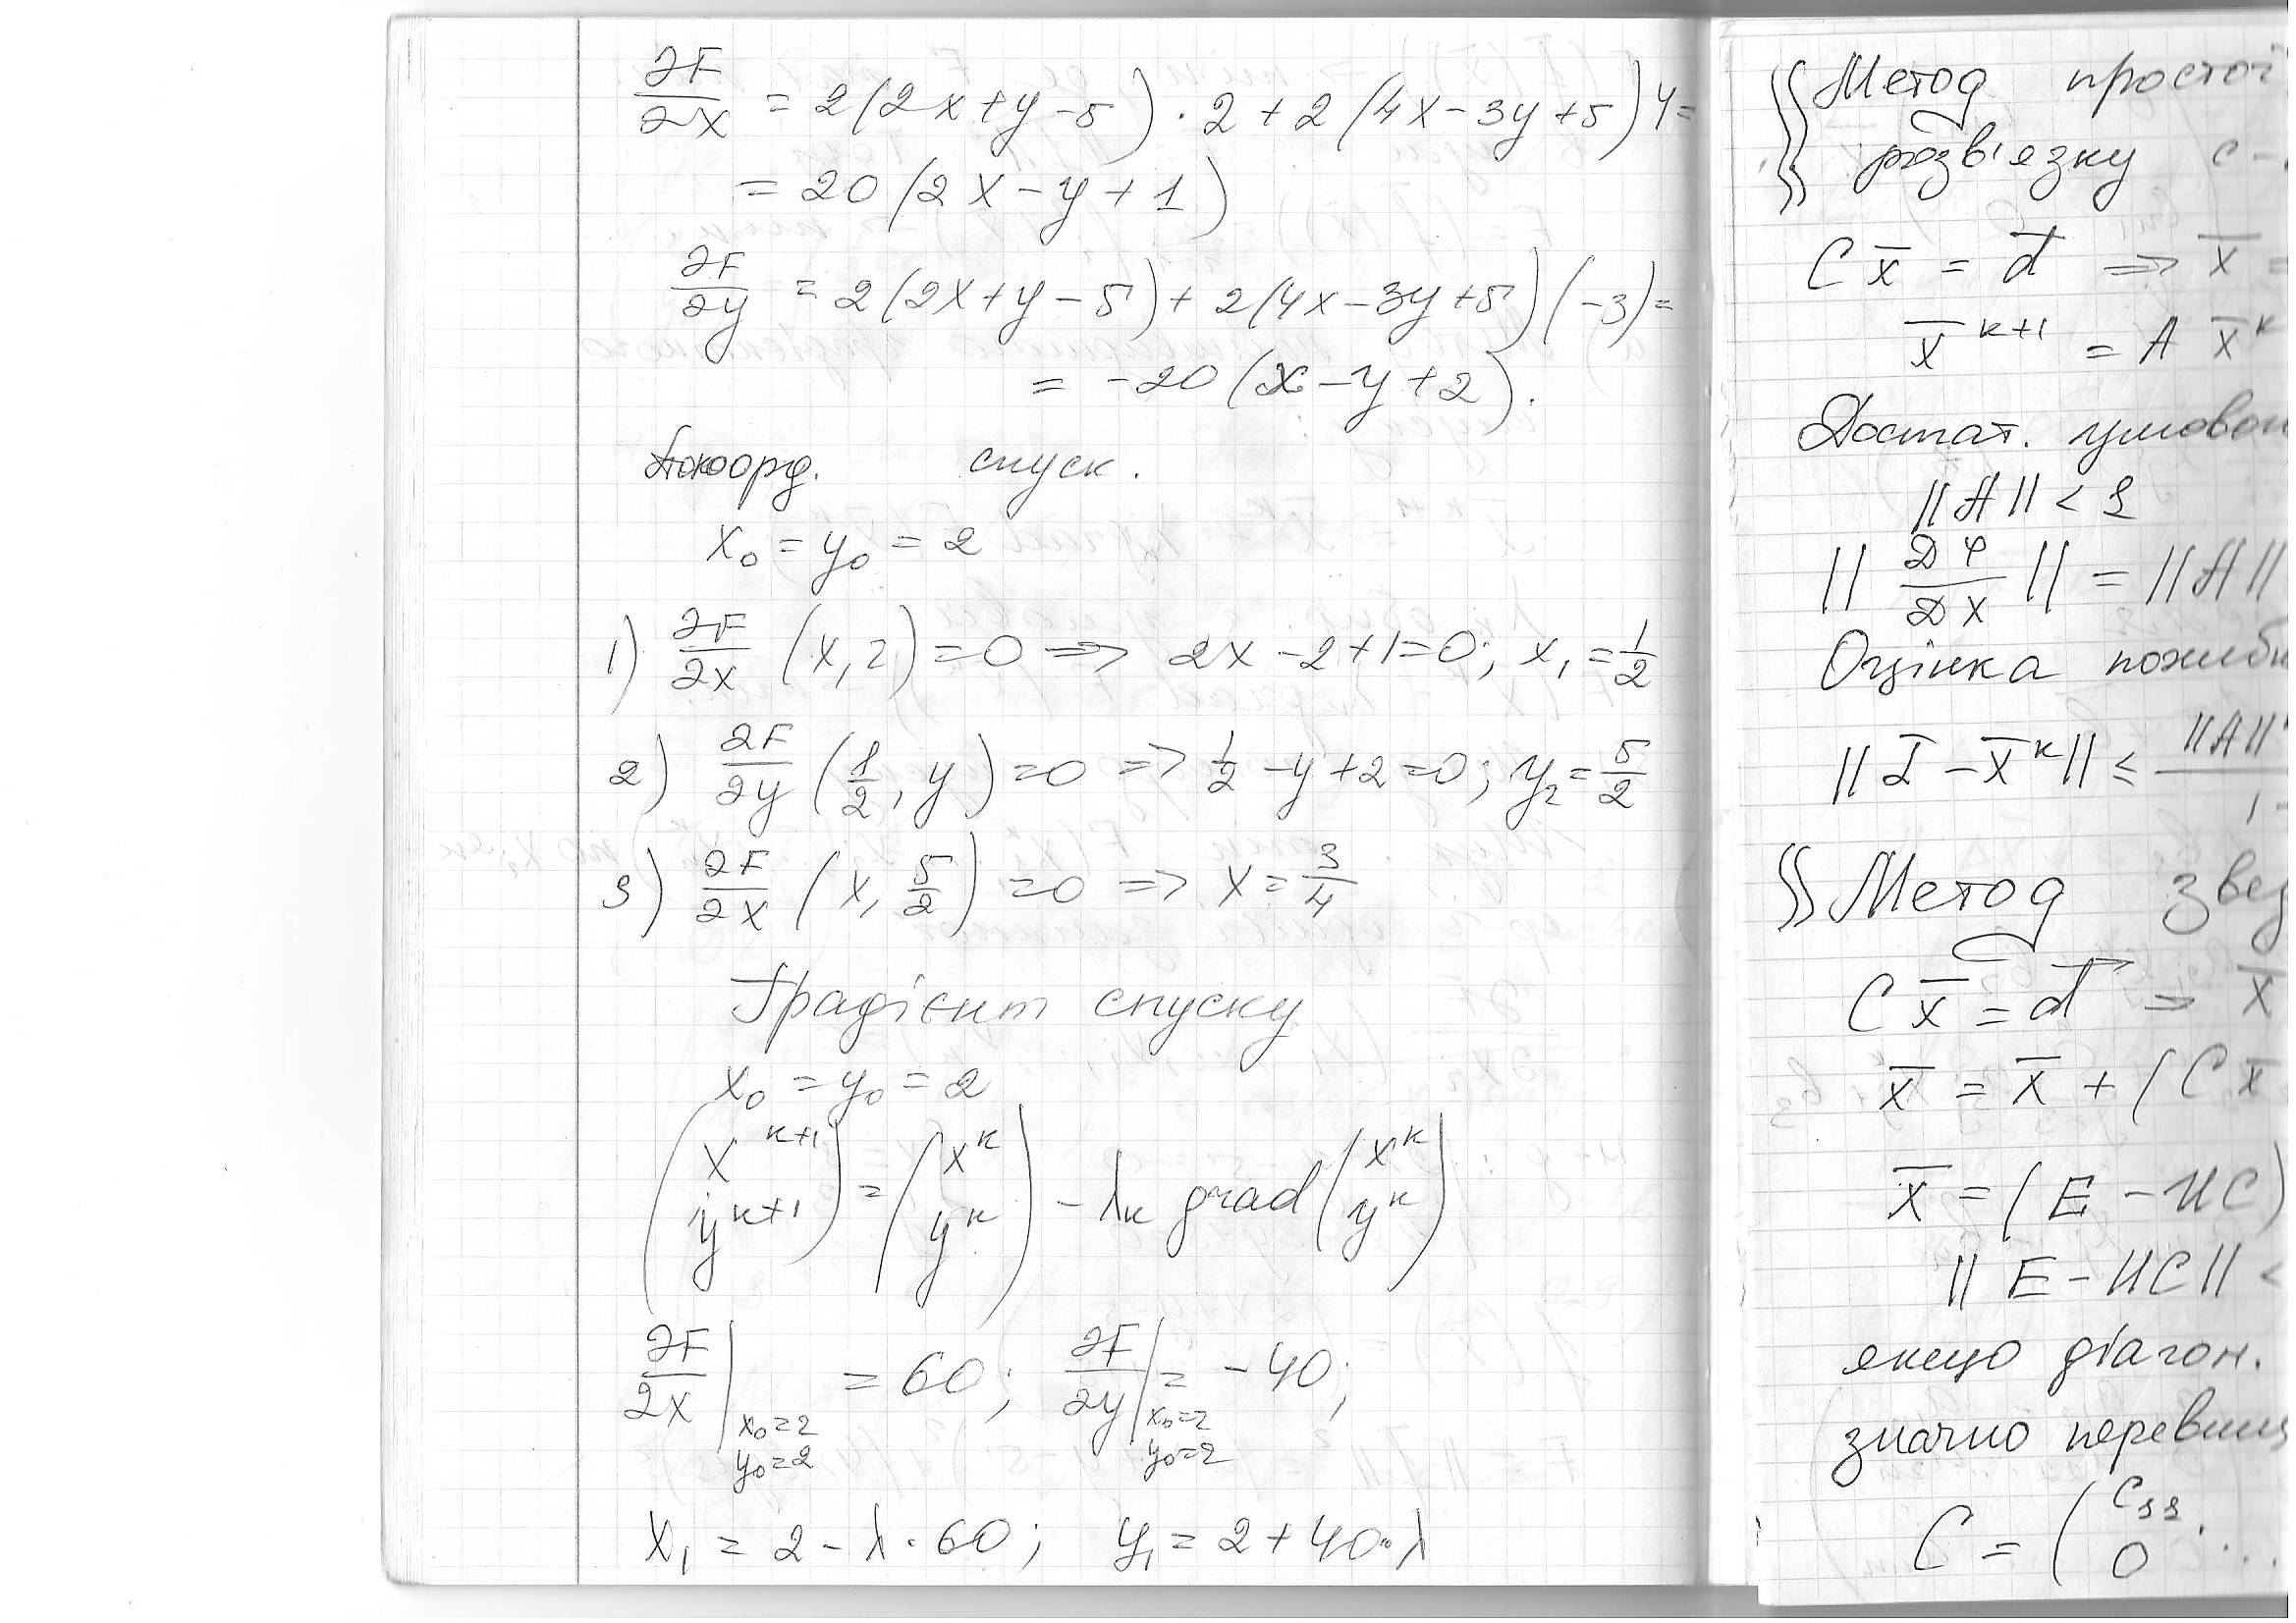 ∂F/∂x = 2(2x+y-5)·2+2(4x-3y+5)4=
= 20(2x-y+1)
∂F/∂y = 2(2x+y-5)+2(4x-3y+5)(-3)=
= -20(x-y+2).
Покоорд. спуск.
x₀ = y₀ = 2
1) ∂F/∂x (x, 2) = 0 => 2x-2+1=0; x₁ = 1/2
2) ∂F/∂y (1/2, y) = 0 => 1/2 - y + 2 = 0; y₂ = 5/2
3) ∂F/∂x (x, 5/2) = 0 => x = 3/4
Градієнт спуску
x₀ = y₀ = 2
(x^{k+1} y^{k+1}) = (x^k y^k) - λ_k grad (x^k y^k)
∂F/∂x | x₀=2 y₀=2 = 60; ∂F/∂y | x₀=2 y₀=2 = -40;
x₁ = 2 - λ·60; y₁ = 2 + 40·λ
Метод простої
розв'язку
C x̄ = d̄ => x̄ =
x̄^{k+1} = A x̄^k
Достат. умовою
||A|| < 1
|| Dφ/Dx || = ||A||
Оцінка похибки
- x̄^k|| ≤ ||A||
1 -
Метод звед
C x̄ = d => x̄
x̄ = x̄ + (C x̄
x̄ = (E - ИC)
|| E - ИC || <
якщо діагон.
значно перевищ
C = ( C₁₁ ...
0